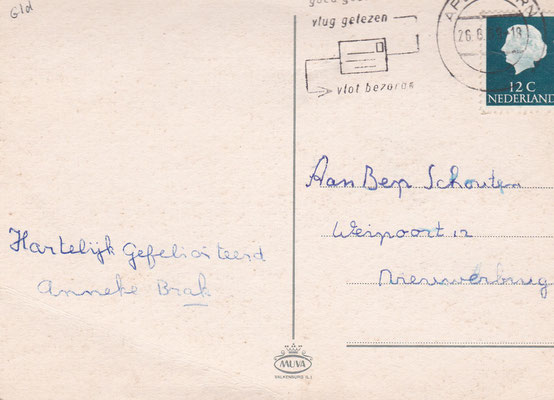 Gld
vlug gelezen
vlot bezorgd
26.6.69.-18
12 C
NEDERLAND
Aan Bep Schouten
Weipoort 12
Nieuwerbrug
Hartelijk Gefeliciteerd
Anneke Brak
MUVA
VALKENBURG